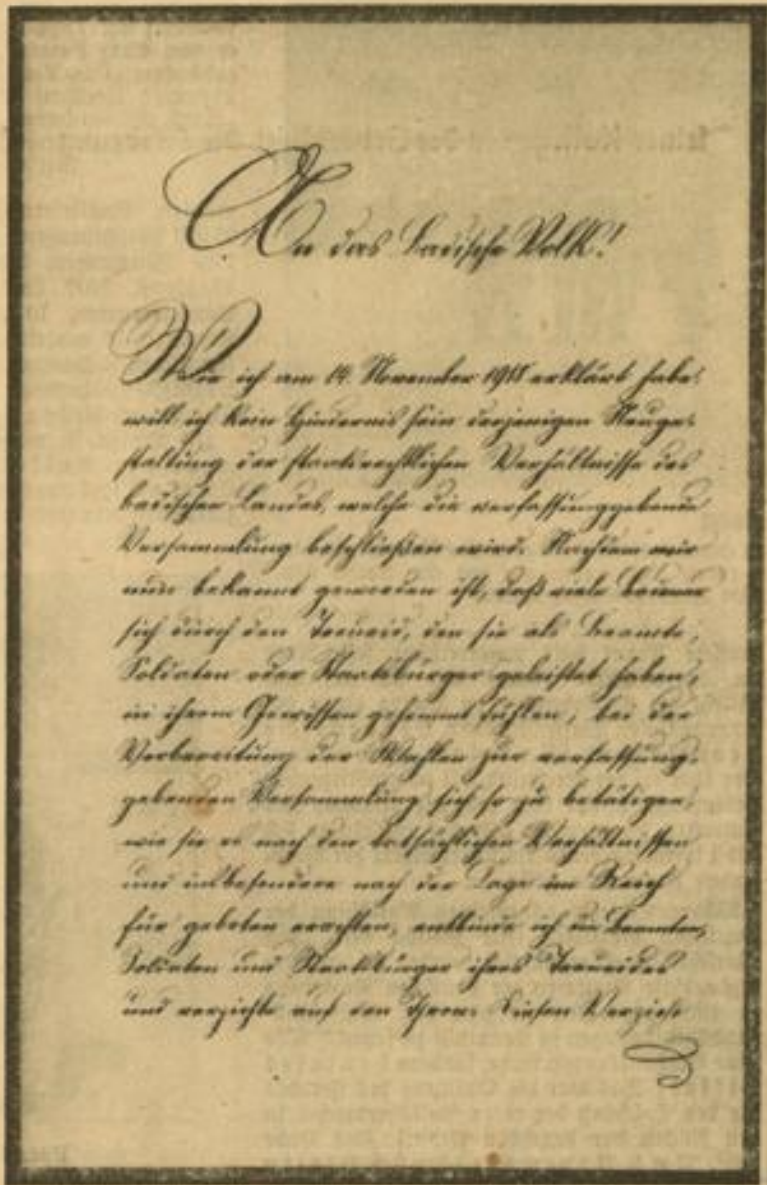 An das badische Volk!
Wie ich am 14. November 1918 erklärt habe,
will ich kein Hindernis sein derjenigen Neuge-
staltung der staatsrechtlichen Verhältnisse des
badischen Landes, welche die verfassunggebende
Versammlung beschließen wird. Nachdem mir
nun bekannt geworden ist, daß viele Badener
sich durch den Treueid, den sie als Beamte,
Soldaten oder Staatsbürger geleistet haben,
in ihrem Gewissen gehemmt fühlen, bei der
Vorbereitung der Wahlen zur verfassung-
gebenden Versammlung sich so zu betätigen,
wie sie es nach den tatsächlichen Verhältnissen
und insbesondere nach der Lage im Reich
für geboten erachten, entbinde ich die Beamten,
Soldaten und Staatsbürger ihres Treueides
und verzichte auf den Thron. Diesen Verzicht